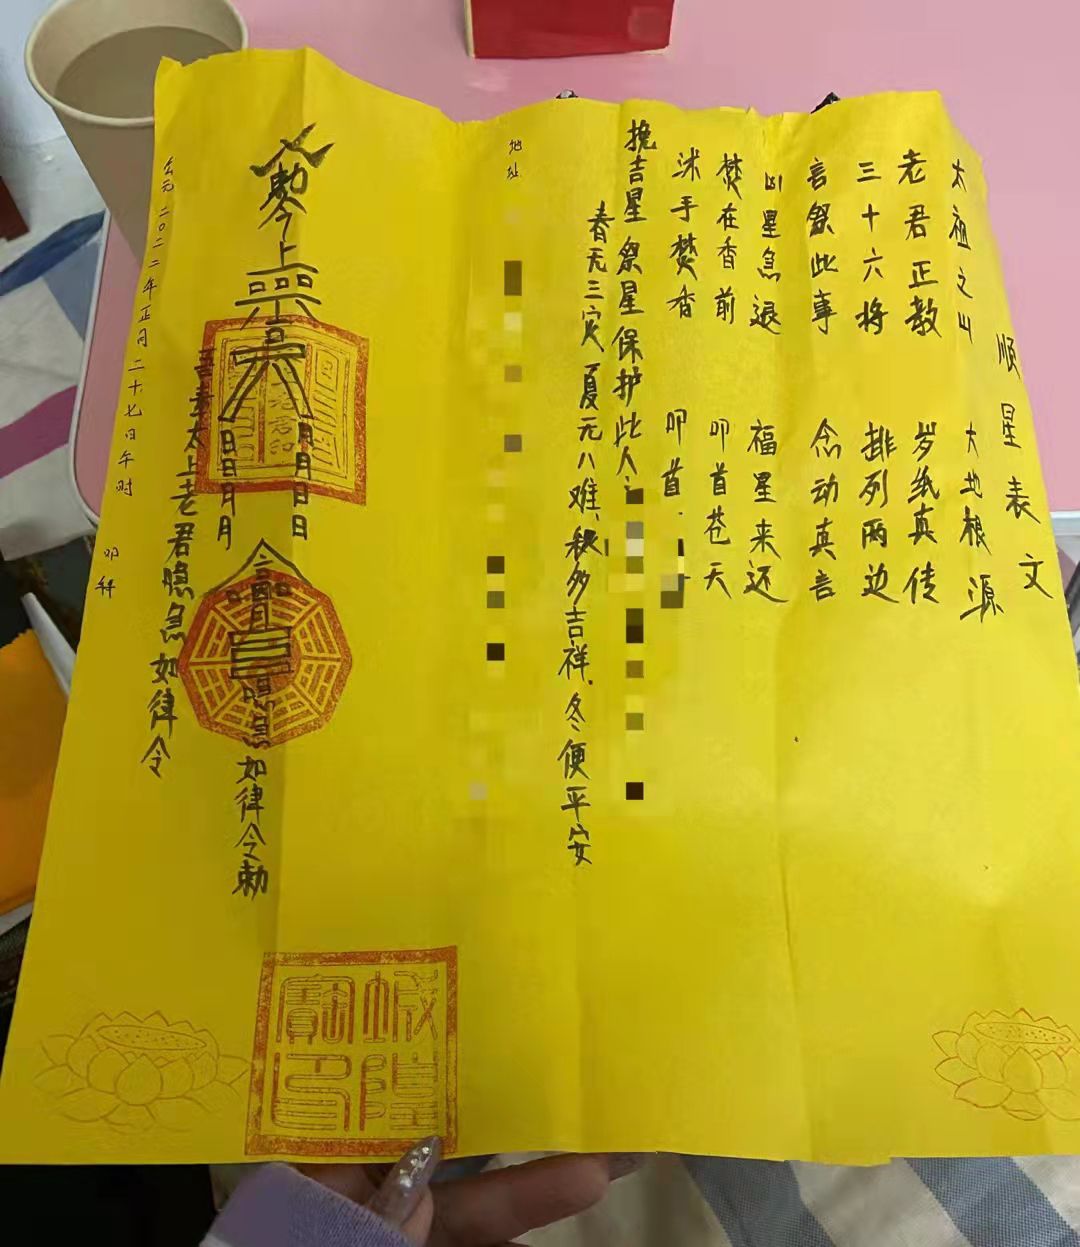 顺星表文
太祖之山 大地根源
老君正教 岁纸真传
三十六将 排列两边
言祭此事 念动真言
凶星急退 福星来还
焚在香前 叩首苍天
沐手焚香 叩首
挽吉星祭星保护此人
春无三灾夏无八难、秋多吉祥、冬便平安
地址
敕令
月月日日
日日月月
急如律令敕
吾奉太上老君急如律令
公元二〇二二年正月二十七日午时 叩拜
老君印
城隍
寶印